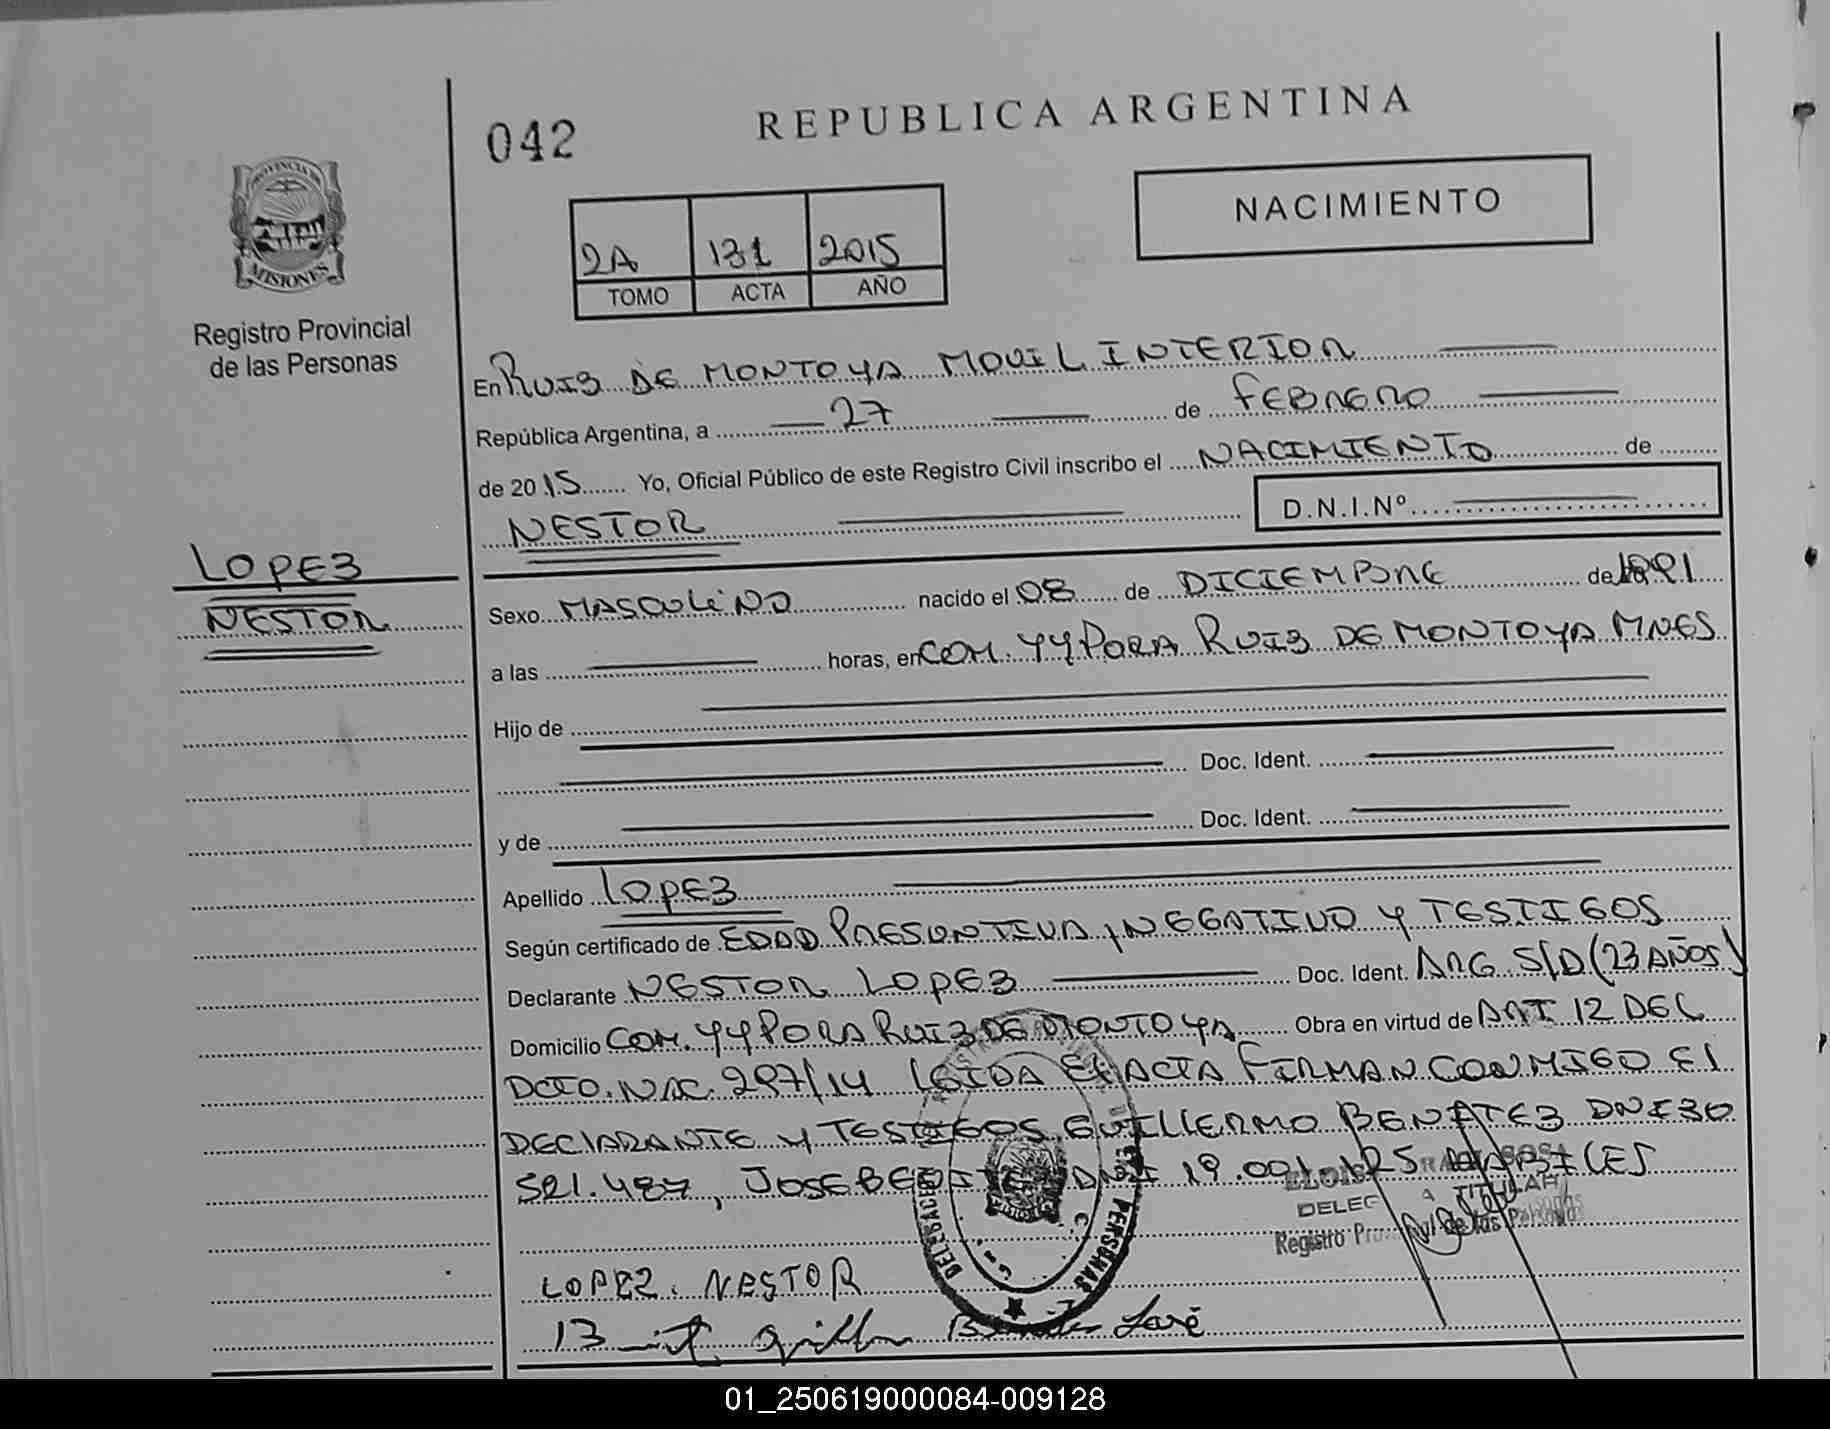 042
REPUBLICA ARGENTINA
NACIMIENTO
2A 131 2015
TOMO ACTA AÑO
PROVINCIA DE
MISIONES
Registro Provincial
de las Personas
LOPEZ
NESTOR
En RUIZ DE MONTOYA MOVIL INTERIOR
República Argentina, a 27 de FEBRERO
de 2015 Yo, Oficial Público de este Registro Civil inscribo el NACIMIENTO de
NESTOR D.N.I.Nº
Sexo MASCULINO nacido el 08 de DICIEMBRE de 1991
a las horas, en COM. YYPORA RUIZ DE MONTOYA MNES
Hijo de
Doc. Ident.
y de Doc. Ident.
Apellido LOPEZ
Según certificado de EDAD PRESUNTIVA, NEGATIVO Y TESTIGOS
Declarante NESTOR LOPEZ Doc. Ident. ARG S/D (23 AÑOS)
Domicilio COM. YYPORA RUIZ DE MONTOYA Obra en virtud de ART 12 DEL
DCTO. NAC. 297/14 LEIDA EL ACTA FIRMAN CONMIGO El
DECLARANTE Y TESTIGOS GUILLERMO BENITEZ DNI 30
521.487, JOSE BENITEZ DNI 19.091.125 HABILES
DELEG TITULAR
Registro Provincial de las Personas
PERSONAS
LOPEZ. NESTOR
José
01_250619000084-009128